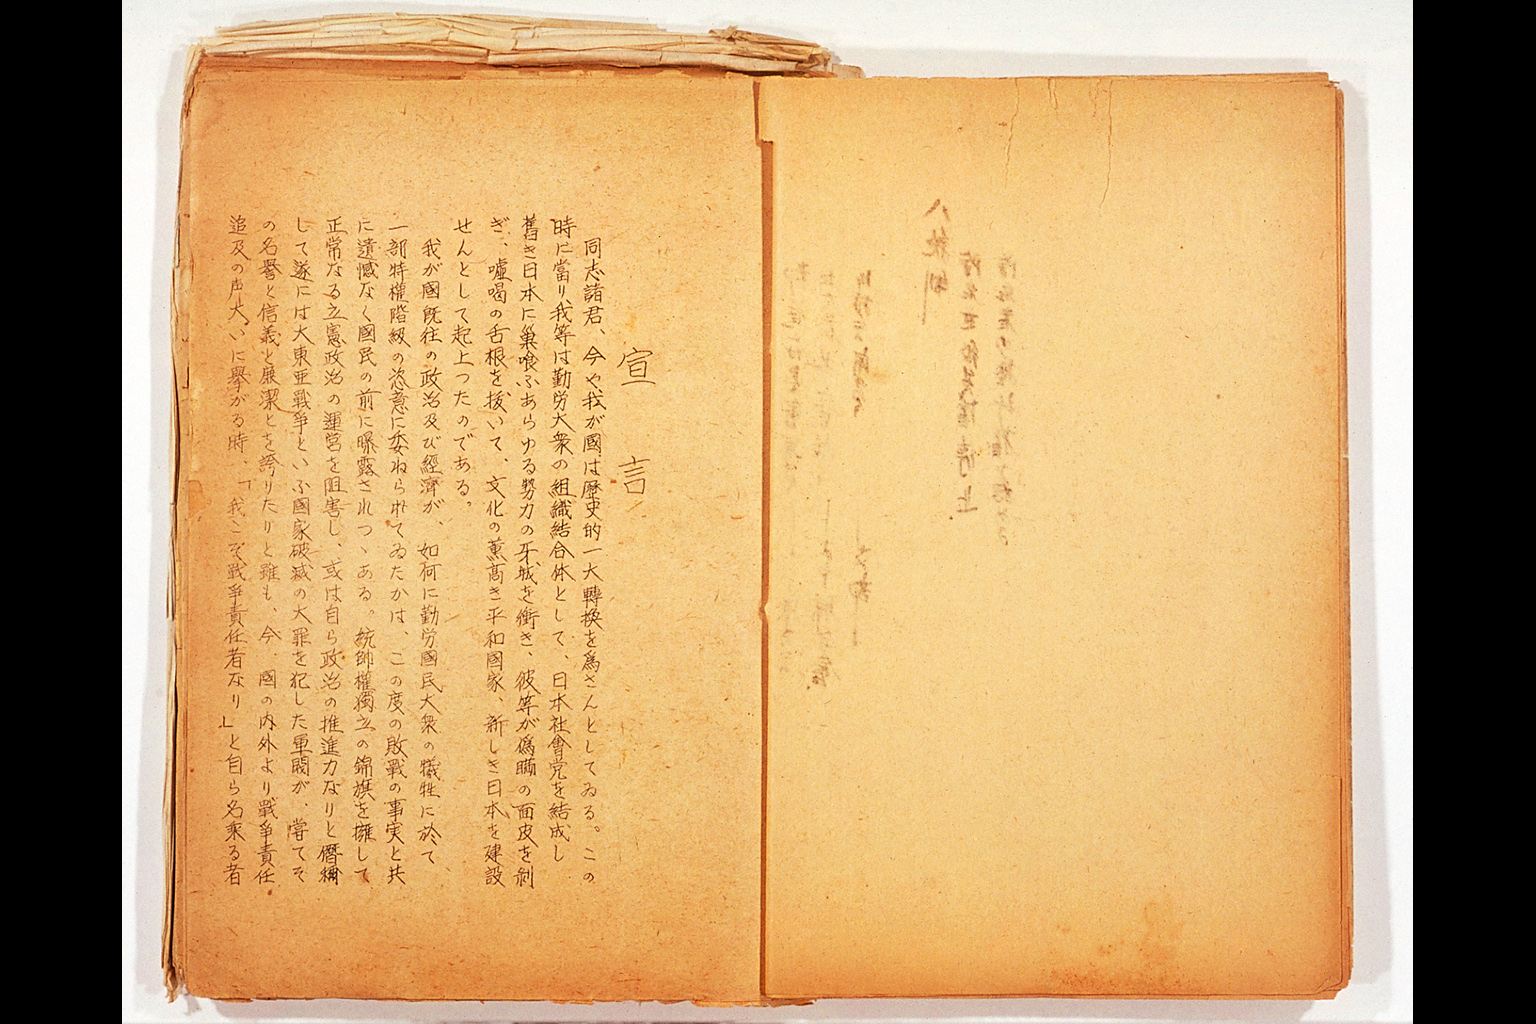 宣言
同志諸君、今や我が國は歴史的一大轉換を爲さんとしてゐる。この
時に當り、我等は勤労大衆の組織結合体として、日本社會党を結成し
舊き日本に巣喰ふあらゆる勢力の牙城を衝き、彼等が偽瞞の面皮を剝
ぎ、嘘喝の舌根を抜いて、文化の薫高き平和國家、新しき日本を建設
せんとして起上つたのである。
我が國既往の政治及び經濟が、如何に勤労國民大衆の犠牲に於て
一部特權階級の恣意に委ねられてゐたかは、この度の敗戰の事実と共
に遺憾なく國民の前に曝露されつゝある。統帥權獨立の錦旗を擁して
正常なる立憲政治の運営を阻害し、或は自ら政治の推進力なりと僭稱
して遂には大東亜戰争といふ國家破滅の大罪を犯した軍閥が、嘗てそ
の名譽と信義と廉潔とを誇りたりと雖も、今、國の内外より戰争責任
追及の声大いに擧がる時、「我こそ戰争責任者なり」と自ら名乘る者